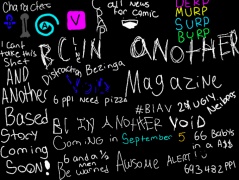 Characters
all News
for Comic
DERP
MURP
SURP
BURP
V
I cant
take this
Shet
BCIIN
ANOTHER
Distraction Bezinga
AND
ANOther
Based
Story
Coming
Soon!
Magazine
6 ppl Need pizza
#BIAV
24 UGLY
Neibors
BI IN ANOTHER
VOID
Coming in September 5
66 Babies
in a A$$
6 and a ½ men
Be warned
Awsome
ALERT
693482 PPI